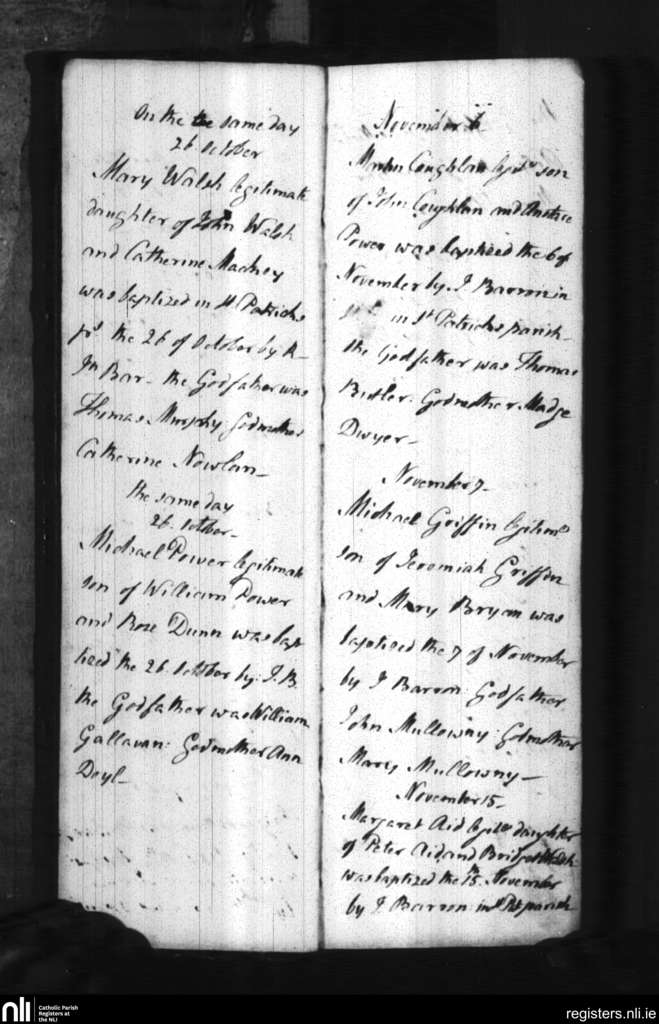 On the the same day
26 October
Mary Walsh legitimate
daughter of John Walsh
and Catherine Mackey
was baptized in St Patricks
ps the 26 of October by R
Jn Bar- the Godfather was
Thomas Murphy Godmother
Catherine Nowlan-
the same day
26. October-
Michael Power legitimate
son of William Power
and Rose Dunn was bap
tized the 26 October by J. B.
the Godfather was William
Gallavan: Godmother Ann
Doyl-
November 6
Martin Coughlan son
of John Coughlan and Anstace
Power was baptized the 6 of
November by J Barron in
in St Patricks parish-
the Godfather was Thomas
Butler. Godmother Madge
Dwyer-
November 7-
Michael Griffin legitim
son of Jeremiah Griffin
and Mary Bryan was
baptized the 7 of November
by J Barron Godfather
John Mullowny: Godmother
Mary Mullowny-
November 15-
Margaret Aid daughter
of Peter Aid and Bridget Walsh
was baptized the 15 November
by J Barron: in St Pat parish
nli
Catholic Parish
Registers at
the NLI
registers.nli.ie